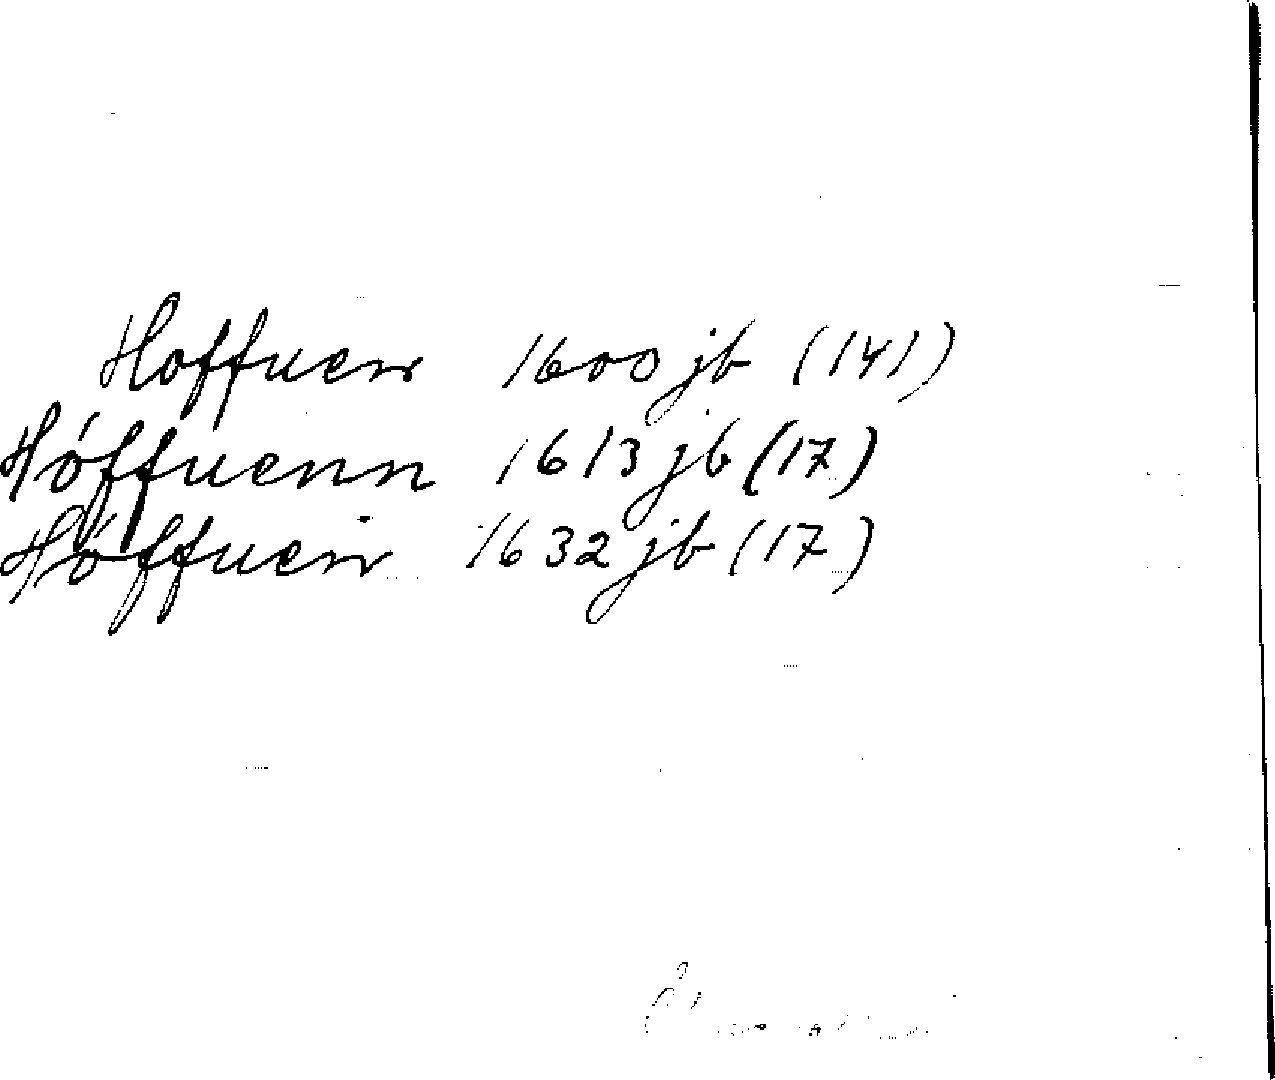 Hoffuen 1600 jb (141)
Hóffuenn 1613 jb (17)
Hóffuen 1632 jb (17)